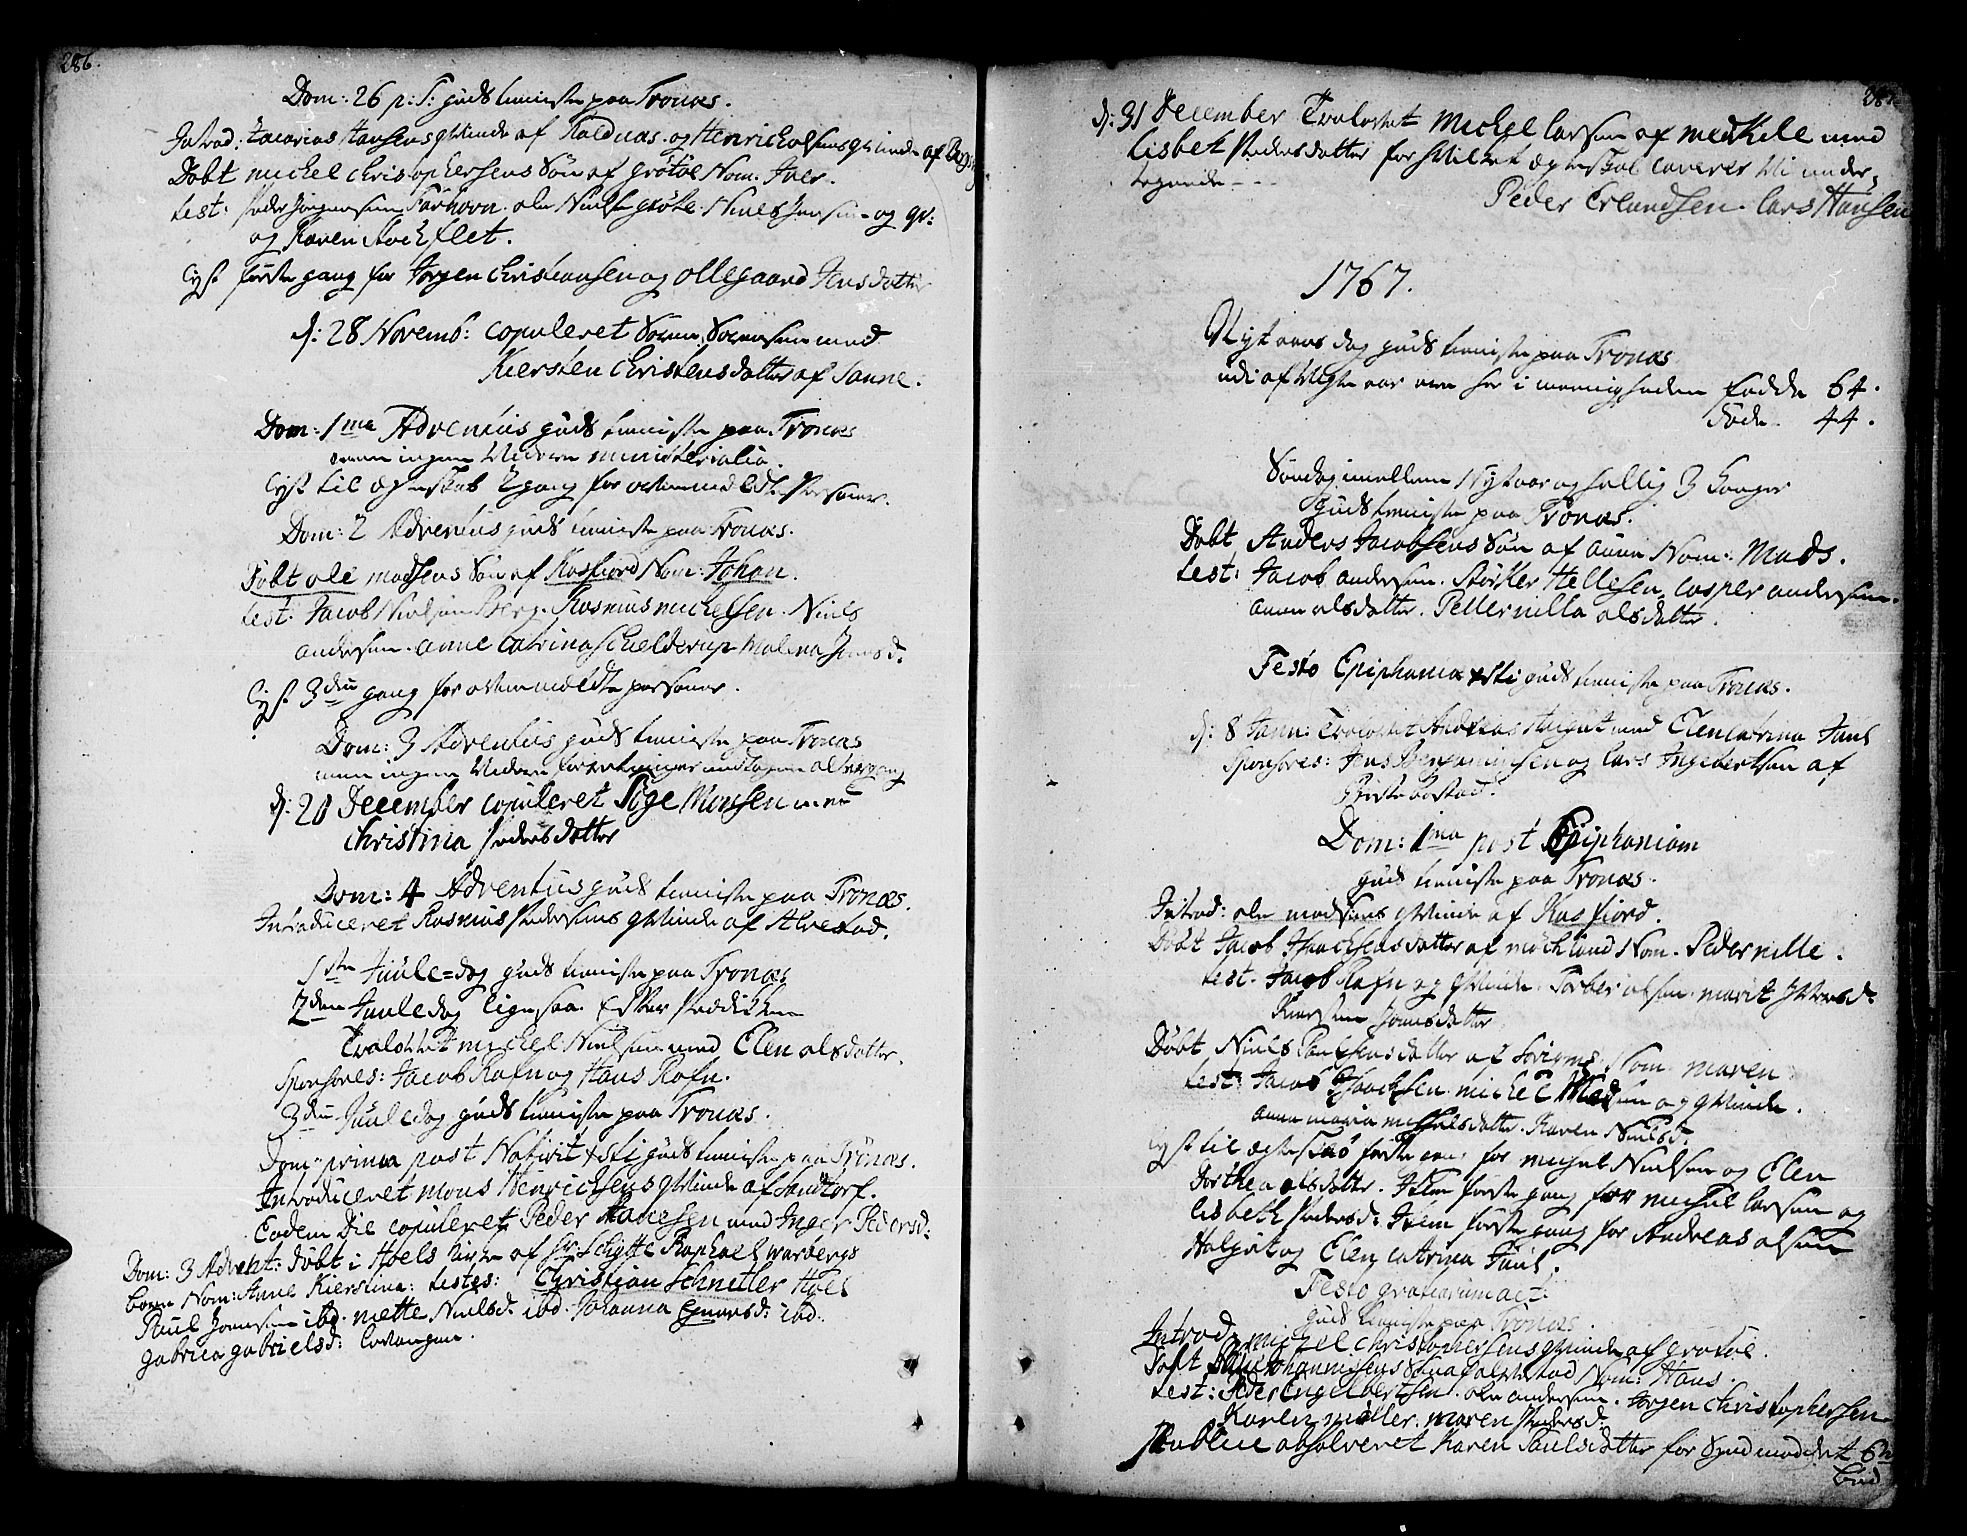 286.
Dom: 26 p: T: gudstieniste paa Tronæs.
Introd: Zacarias Hansens qvinde af Kaldnæs og Henrich olsens qvinde af
Døbt michel Christophersens Søn af grøtøe Nom: Iver.
test: Peder Jørgensen Farhovn. ole Niels. Niels Jensen og qv:
og Karen Stochflet.
Lyst første gang for Jørgen Christiansen og Ollegaard Jensdatter
d: 28 Novemb: copuleret Søren Sørensen med
Kiersten Christensdatter af Sanne.
Dom: 1ma Adventus gudstieniste paa Tronæs
men ingen videre ministerialia.
Lyst til ægteskab 2 gang for ovenmeldte Personer.
Dom: 2 Adventus gudstieniste paa Tronæs.
Døbt ole madsens Søn af Kasfiord Nom: Johan.
test: Jacob Nielsen Berg. Rasmus michelsen. Niels
andersen. anne Catrina Schielderup Malena Jensd:
Lyst 3die gang for ovenmeldte personer.
Dom: 3 Adventus gudstieniste paa Tronæs
men ingen videre forretninger
d: 20 December copuleret Sige Monsen med
Christina Pedersdatter
Dom: 4 Adventus gudstieniste paa Tronæs.
Introduceret Rasmus Pedersens qvinde af
1ste Juule-dag gudstieniste paa Tronæs
2den Juuledag ligesaa. Efter Prædikken
Trolovet michel Nielsen med Elen olsdatter.
Sponsores: Jacob Rafn og Hans Rafn.
3die Juuledag gudstieniste paa Tronæs.
Dom: prima post Nativit Xsti gudstieniste paa Tronæs.
Introduceret mons Henrichsens qvinde af Sandtorf.
Eodem Die copuleret Peder Hansen med Inger Pedersd:
Dom: 3 Advent: døbt i Hoels kirke af Hr Schytte Raphael Warbergs
barn Nom: Anne Kierstina: testes: Christian Schnetler Hoel
Paul Jonsen ibd. mette Nielsd: ibd. Johanna Ejnersd: ibd.
gabriela gabrielsd:
287
d: 31 December Trolovet Michel Larsen af medkile med
Lisbet Pedersdatter for hvilket ægteskab caverer vi under-
tegnede---
Peder Erlandsen. Lars Hansen
1767.
Nyt aars dag gudstieniste paa Tronæs
udi afvigte aar ere her i menigheden fødde 64.
Døde. 44.
Søndag imellem Nytaar og hellig 3 Konger
gudstieniste paa Tronæs.
Døbt Anders Jacobsens Søn af aune Nom: Mads.
test: Jacob andersen. Størker Hellesen, Casper andersen.
anne olsdatter. Pellernilla olsdatter.
Festo Epiphania Xsti gudstieniste paa Tronæs.
d: 8 Janu: Trolovet Andreas Halqvist med Elen Catrina Juul
Sponsores: Jens Benjaminsen og Lars Ingebertsen af
Dom: 1ma post Epiphaniam
gudstieniste paa Tronæs.
Introd: ole madsens qvinde af Kasfiord.
Døbt Jacob Isaachsens datter af møchland Nom. Pedernille.
test. Jacob Rafn og qvinde. Torber olsen. marit Iversd:
Kiersten Jonsdatter
Døbt Niels Paulsens datter af Nom. maren
test: Jacob Isaachsen. michel Madsen og qvinde.
anne maria michelsdatter. Karen Nielsd:
Lyst til ægteskab første gang for michel Nielsen og Elen
Dorthea olsdatter. Item første gang for michel Larsen og
Lisbeth Pedersd: Item første gang for Andreas olsen
Halqvist og Elen Catrina Juul.
Festo gratiarum act:
gudstieniste paa Tronæs.
Introd: michel Christophersens qvinde af grøtøe.
Døbt Johannisens Søn Nom: Hans.
test: Peder Engelbertsen. ole andersen. Jørgen Christophersen
Karen møller. maren Pedersd:
Publice absolveret Karen Paulsdatter for Synd mod det 6te
Bud